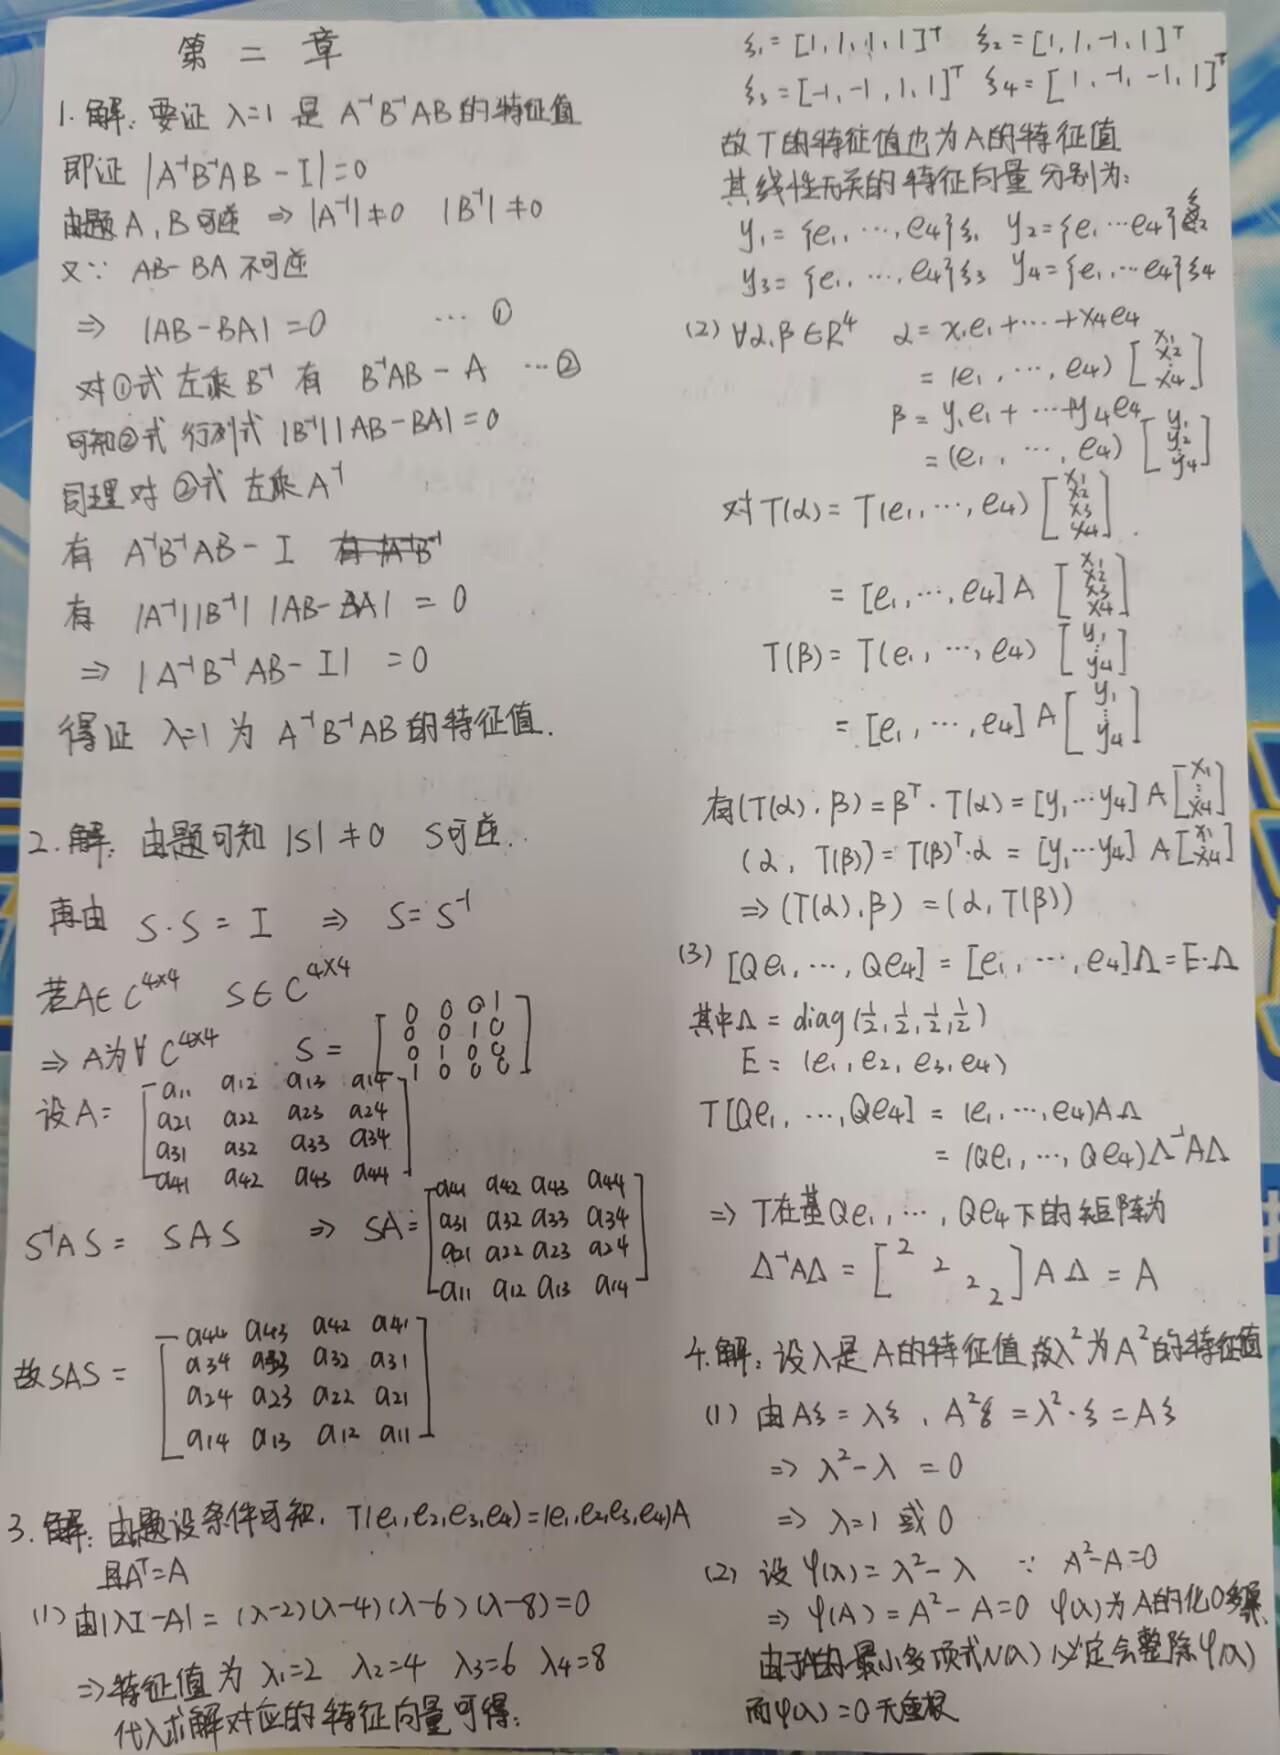 第二章
1.解：要证 λ=1 是 A⁻¹B⁻¹AB 的特征值
即证 |A⁻¹B⁻¹AB - I|=0
由题A,B可逆 ⇒ |A⁻¹|≠0 |B⁻¹|≠0
又∵ AB-BA 不可逆
⇒ |AB-BA|=0 … ①
对①式左乘B⁻¹有 B⁻¹AB-A …②
可知②式行列式 |B⁻¹||AB-BA|=0
同理对②式左乘A⁻¹
有 A⁻¹B⁻¹AB-I
有 |A⁻¹||B⁻¹||AB-BA|=0
⇒ |A⁻¹B⁻¹AB-I|=0
得证 λ=1 为 A⁻¹B⁻¹AB的特征值.
2.解：由题可知 |S|≠0 S可逆.
再由 S·S=I ⇒ S=S⁻¹
若A∈C^{4×4} S∈C^{4×4}
⇒ A为∀C^{4×4} S=
0 0 0 1
0 0 1 0
0 1 0 0
1 0 0 0
设A=
a11 a12 a13 a14
a21 a22 a23 a24
a31 a32 a33 a34
a41 a42 a43 a44
S⁻¹AS = SAS ⇒ SA=
a41 a42 a43 a44
a31 a32 a33 a34
a21 a22 a23 a24
a11 a12 a13 a14
故SAS=
a44 a43 a42 a41
a34 a33 a32 a31
a24 a23 a22 a21
a14 a13 a12 a11
3.解：由题设条件可知，T(e₁,e₂,e₃,e₄)=(e₁,e₂,e₃,e₄)A
且Aᵀ=A
(1)由|λI-A|=(λ-2)(λ-4)(λ-6)(λ-8)=0
⇒特征值为 λ₁=2 λ₂=4 λ₃=6 λ₄=8
代入求解对应的特征向量可得：
ξ₁=[1,1,1,1]ᵀ ξ₂=[1,1,-1,1]ᵀ
ξ₃=[-1,-1,1,1]ᵀ ξ₄=[1,-1,-1,1]ᵀ
故T的特征值也为A的特征值
其线性无关的特征向量分别为：
y₁={e₁,…,e₄}ξ₁ y₂={e₁…e₄}ξ₂
y₃={e₁,…,e₄}ξ₃ y₄={e₁,…e₄}ξ₄
(2)∀α,β∈R⁴ α=x₁e₁+…+x₄e₄
=(e₁,…,e₄)[x₁ x₂ ⋮ x₄]
β=y₁e₁+…+y₄e₄
=(e₁,…,e₄)[y₁ y₂ ⋮ y₄]
对T(α)=T(e₁,…,e₄)[x₁ x₂ x₃ x₄]
=[e₁,…,e₄]A[x₁ x₂ x₃ x₄]
T(β)=T(e₁,…,e₄)[y₁ ⋮ y₄]
=[e₁,…,e₄]A[y₁ ⋮ y₄]
有(T(α),β)=βᵀ·T(α)=[y₁…y₄]A[x₁ ⋮ x₄]
(α,T(β))=T(β)ᵀ·α=[y₁…y₄]A[x₁ ⋮ x₄]
⇒(T(α),β)=(α,T(β))
(3)[Qe₁,…,Qe₄]=[e₁,…,e₄]Λ=E·Λ
其中Λ=diag(½,½,½,½)
E=(e₁,e₂,e₃,e₄)
T[Qe₁,…,Qe₄]=(e₁,…,e₄)AΛ
=(Qe₁,…,Qe₄)Λ⁻¹AΛ
⇒ T在基Qe₁,…,Qe₄下的矩阵为
Λ⁻¹AΛ=[2 2 2 2]AΛ=A
4.解：设λ是A的特征值故λ²为A²的特征值
(1)由Aξ=λξ，A²ξ=λ²·ξ=Aξ
⇒λ²-λ=0
⇒λ=1或0
(2)设φ(λ)=λ²-λ ∵ A²-A=0
⇒φ(A)=A²-A=0 φ(λ)为A的化0多项
由于A的最小多项式N(λ)必定会整除φ(λ)
而φ(λ)=0无重根